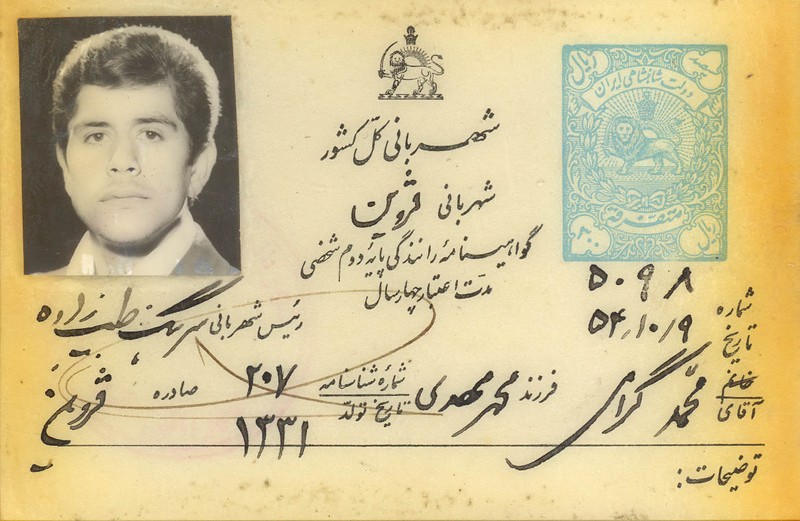 شهربانی کل کشور
شهربانی قزوین
گواهینامه رانندگی پایهٔ دوم شخصی
مدت اعتبار چهار سال
ریال
دولت شاهنشاهی ایران
متفرقه
ریال
شماره ۵۰۹۸
تاریخ ۵۴/۱۰/۹
رئیس شهربانی سرهنگ طبیب زاده
خانم
آقای محمد گرامی فرزند محمد مهدی شماره شناسنامه ۲۰۷ صادره قزوین
تاریخ تولد ۱۳۳۱
توضیحات: